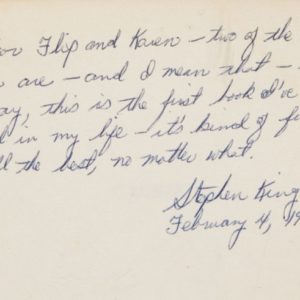 For Flip and Karen - two of the
are - and I mean that -
ay, this is the first book I've
in my life - it's kind of
the best, no matter what.
Stephen King
February 4, 19